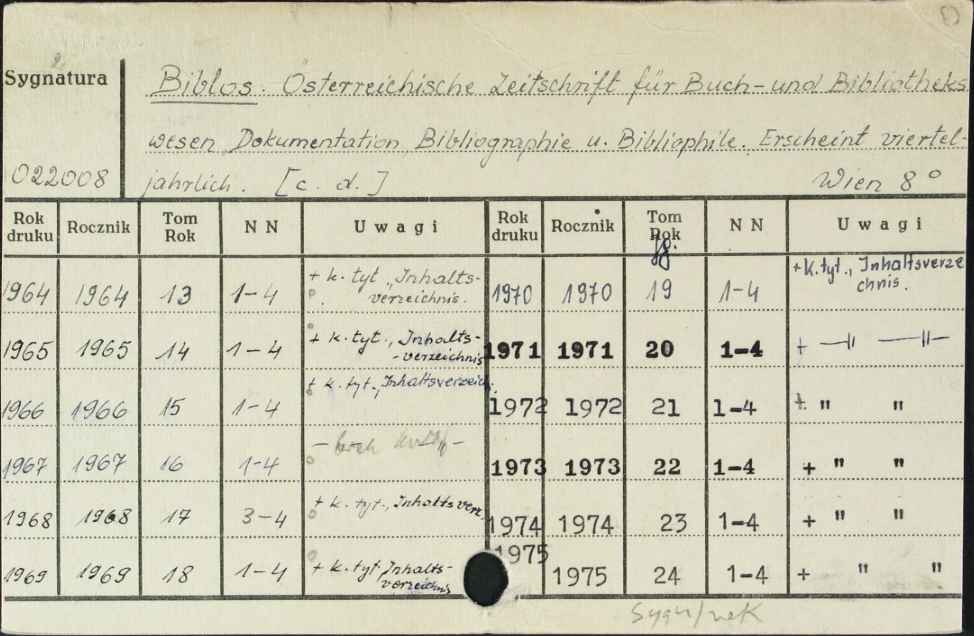 Sygnatura
022008
Biblos. Österreichische Zeitschrift für Buch- und Bibliotheks
wesen, Dokumentation, Bibliographie u. Bibliophile. Erscheint viertel-
jahrlich. [c. d.] Wien 8°
Rok druku Rocznik Tom Rok NN Uwagi Rok druku Rocznik Tom Rok NN Uwagi
Jg.
1964 1964 13 1-4 + k. tyt., Inhalts-verzeichnis. 1970 1970 19 1-4 + k. tyt., Inhaltsverzeichnis.
1965 1965 14 1-4 + k. tyt., Inhalts--verzeichnis 1971 1971 20 1-4 + —||— —||—
1966 1966 15 1-4 + k. tyt., Inhaltsverzeich. 1972 1972 21 1-4 + " "
1967 1967 16 1-4 1973 1973 22 1-4 + " "
1968 1968 17 3-4 + k. tyt., Inhaltsverz. 1974 1974 23 1-4 + " "
1969 1969 18 1-4 + k. tyt. Inhalts-verzeichnis 1975 1975 24 1-4 + " "